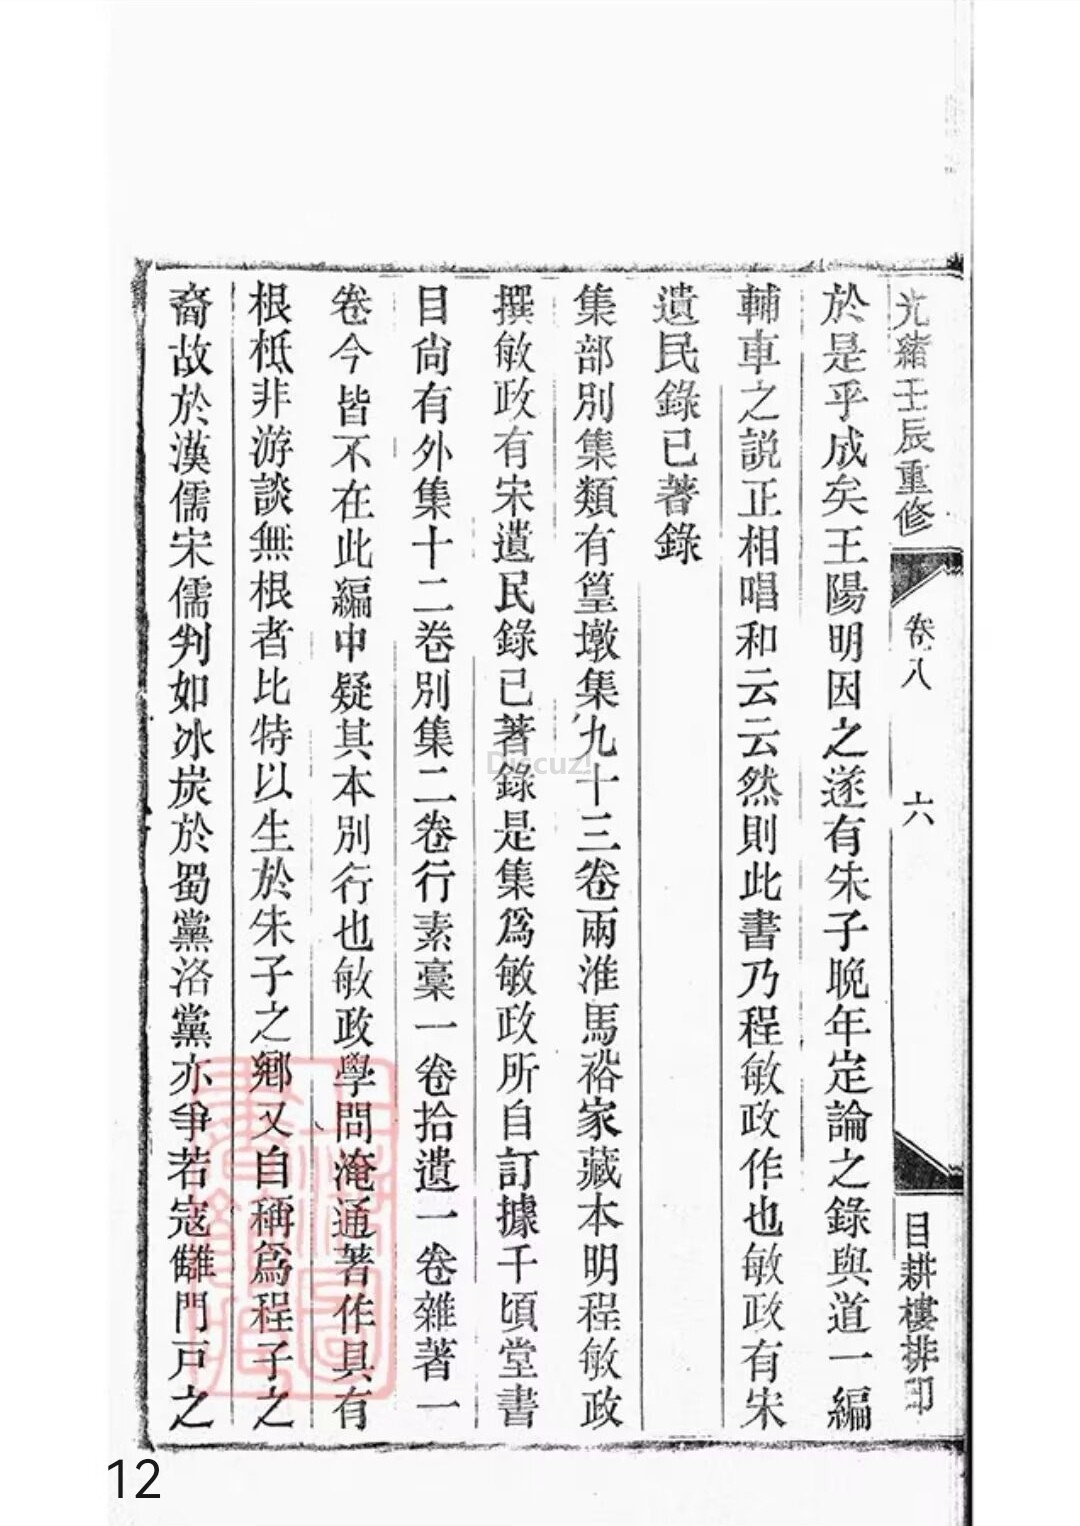 光緒壬辰重修
卷八
六
目耕樓排印
於是乎成矣王陽明因之遂有朱子晚年定論之錄與道一編
輔車之説正相唱和云云然則此書乃程敏政作也敏政有宋
遺民錄已著錄
集部別集類有篁墩集九十三卷兩淮馬裕家藏本明程敏政
撰敏政有宋遺民錄已著錄是集爲敏政所自訂據千頃堂書
目尙有外集十二卷別集二卷行素稾一卷拾遺一卷雜著一
卷今皆不在此編中疑其本別行也敏政學問淹通著作具有
根柢非游談無根者比特以生於朱子之鄉又自稱爲程子之
裔故於漢儒宋儒判如冰炭於蜀黨洛黨亦爭若寇讎門戸之
Discuz!
12